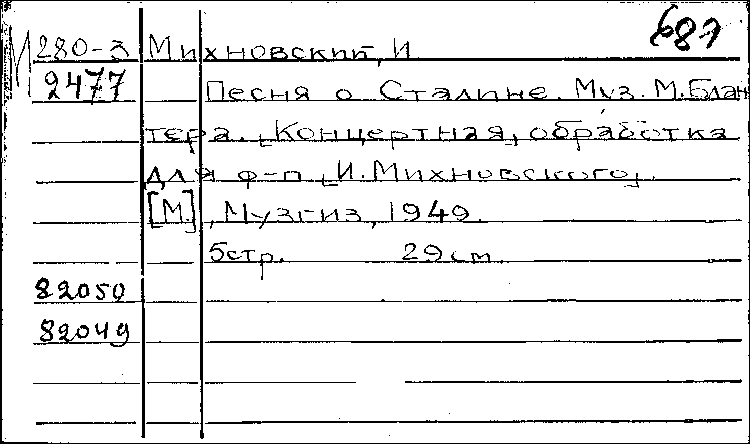 687
М 280-3 Михновский, И.
2477 Песня о Сталине. Муз. М. Блан-
тера. [Концертная] обработка
для ф-п. [И. Михновского].
[М.], Музгиз, 1949.
5 стр. 29 см.
82050
82049